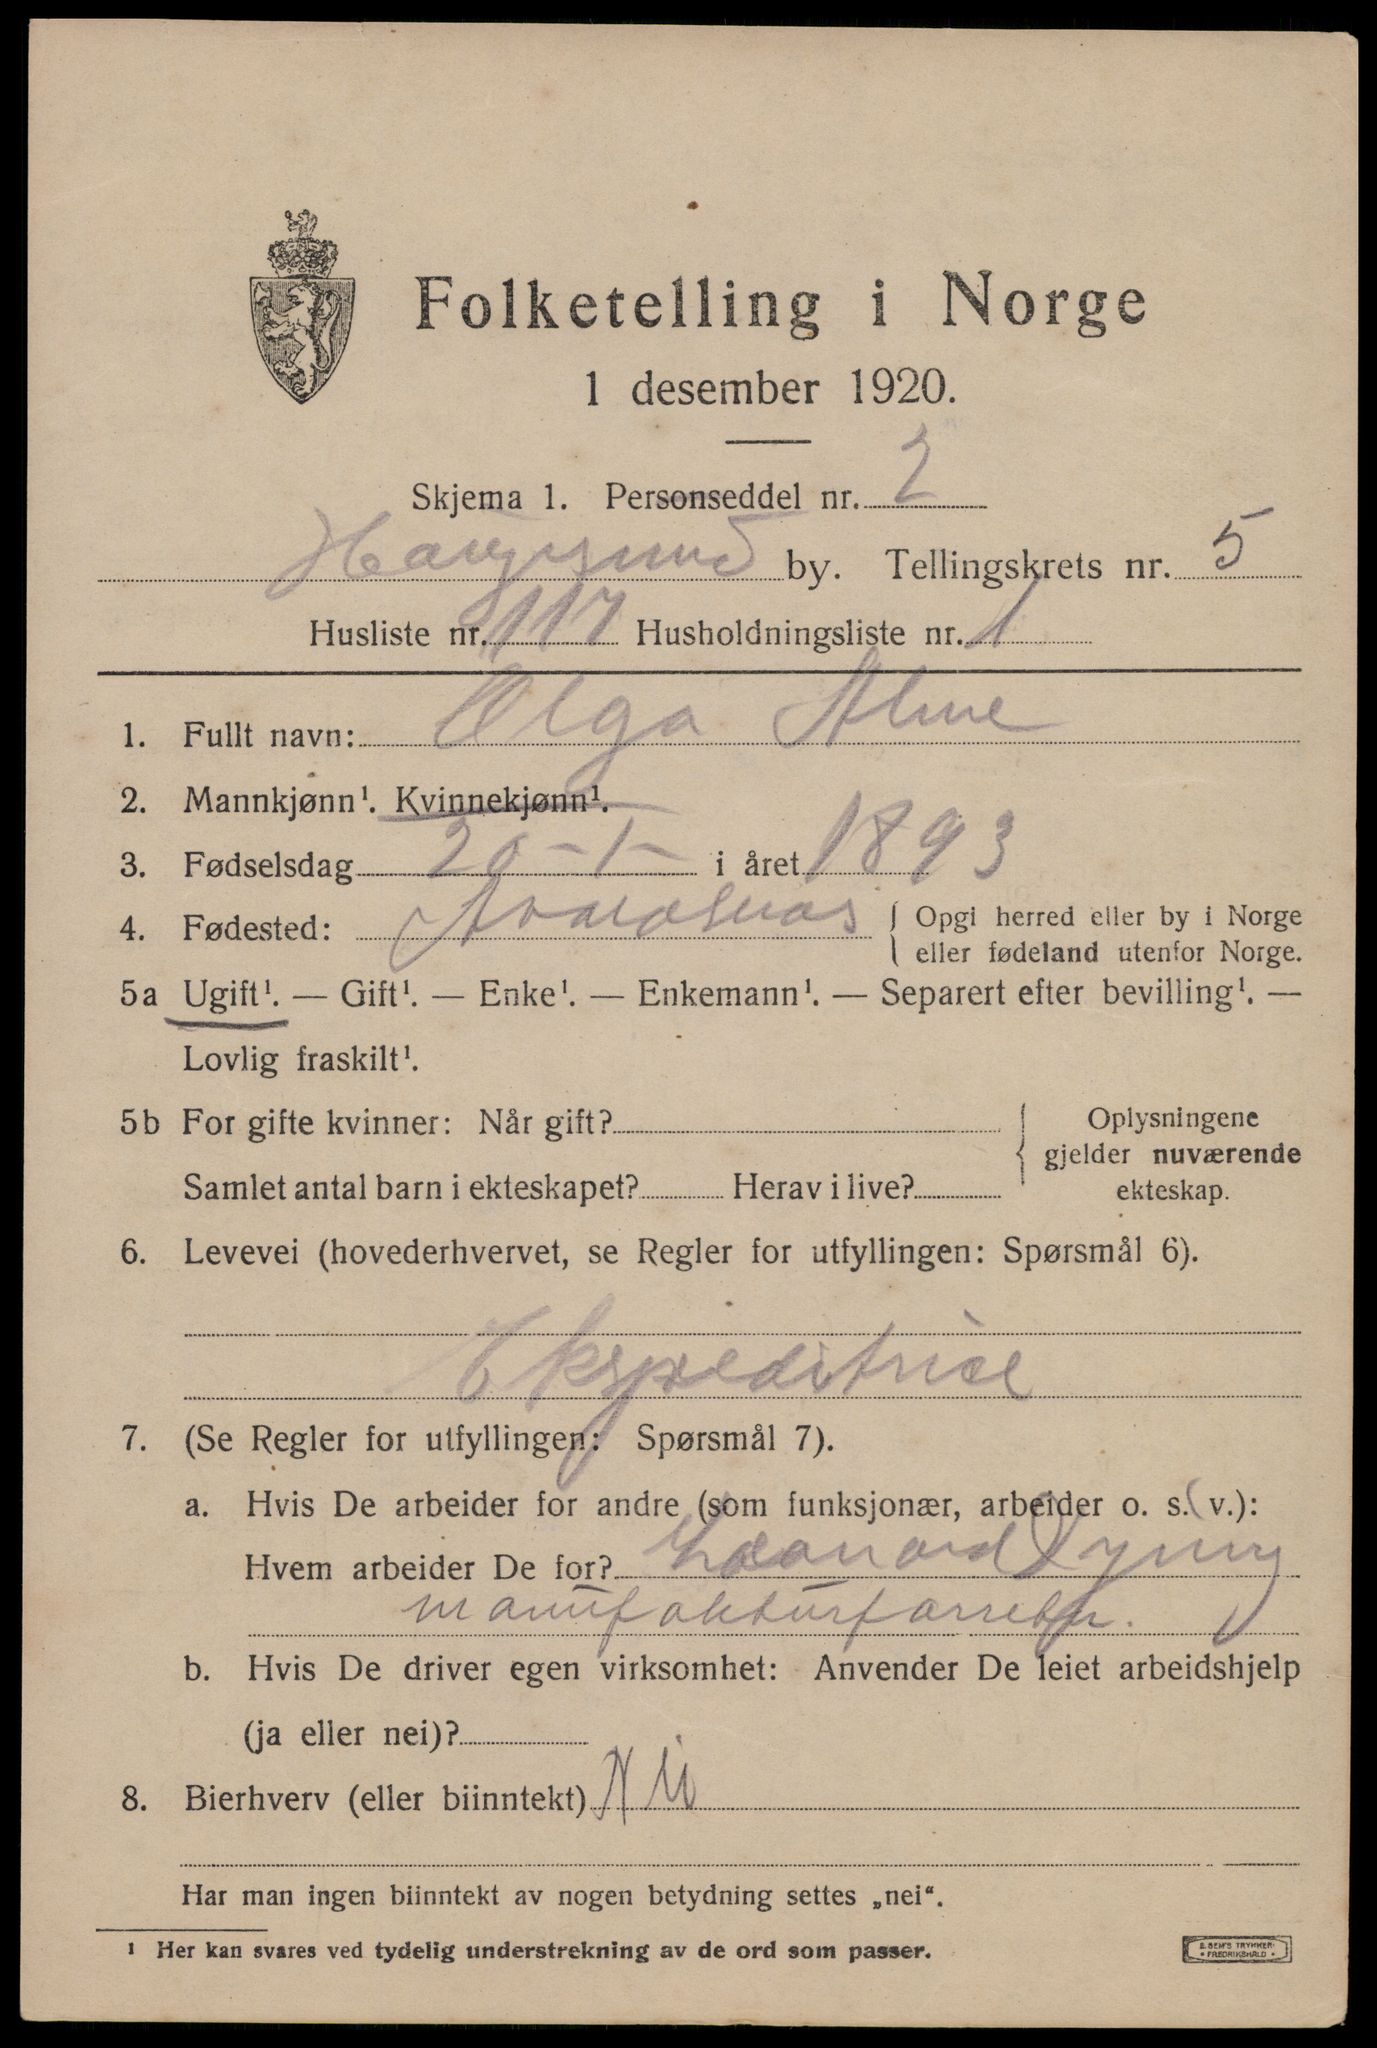 Folketelling i Norge
1 desember 1920.
Skjema 1. Personseddel nr. 2
Haugesund by. Tellingskrets nr. 5
Husliste nr. 117 Husholdningsliste nr. 1
1. Fullt navn: Olga Alme
2. Mannkjønn¹. Kvinnekjønn¹.
3. Fødselsdag 20-1- i året 1893
4. Fødested: { Opgi herred eller by i Norge
eller fødeland utenfor Norge.
5a Ugift¹. — Gift¹. — Enke¹. — Enkemann¹. — Separert efter bevilling¹. —
Lovlig fraskilt¹.
5b For gifte kvinner: Når gift?
Samlet antal barn i ekteskapet? Herav i live?
{ Oplysningene
gjelder nuværende
ekteskap.
6. Levevei (hovederhvervet, se Regler for utfyllingen: Spørsmål 6).
Ekspeditrise
7. (Se Regler for utfyllingen: Spørsmål 7).
a. Hvis De arbeider for andre (som funksjonær, arbeider o. s. v.):
Hvem arbeider De for? Leonard Lyng
manufakturforretn.
b. Hvis De driver egen virksomhet: Anvender De leiet arbeidshjelp
(ja eller nei)?
8. Bierhverv (eller biinntekt) Nei
Har man ingen biinntekt av nogen betydning settes „nei“.
¹ Her kan svares ved tydelig understrekning av de ord som passer.
E. SEM'S TRYKKERI
• FREDRIKSHALD •